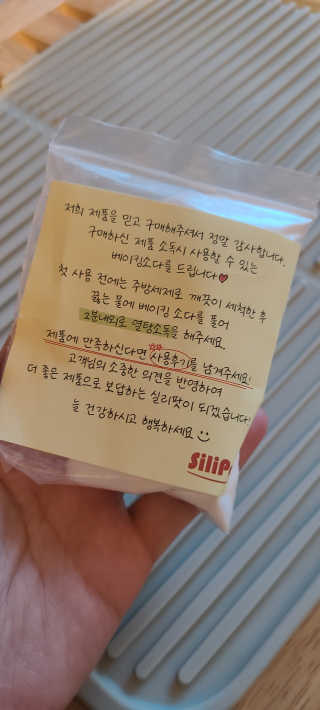 저희 제품을 믿고 구매해주셔서 정말 감사합니다.
구매하신 제품 소독시 사용할 수 있는
베이킹소다를 드립니다♥
첫 사용 전에는 주방세제로 깨끗이 세척한 후
끓는 물에 베이킹 소다를 풀어
2분내외로 열탕소독을 해주세요.
제품에 만족하신다면 사용후기를 남겨주세요!
고객님의 소중한 의견을 반영하여
더 좋은 제품으로 보답하는 실리팟이 되겠습니다!
늘 건강하시고 행복하세요
SiliP